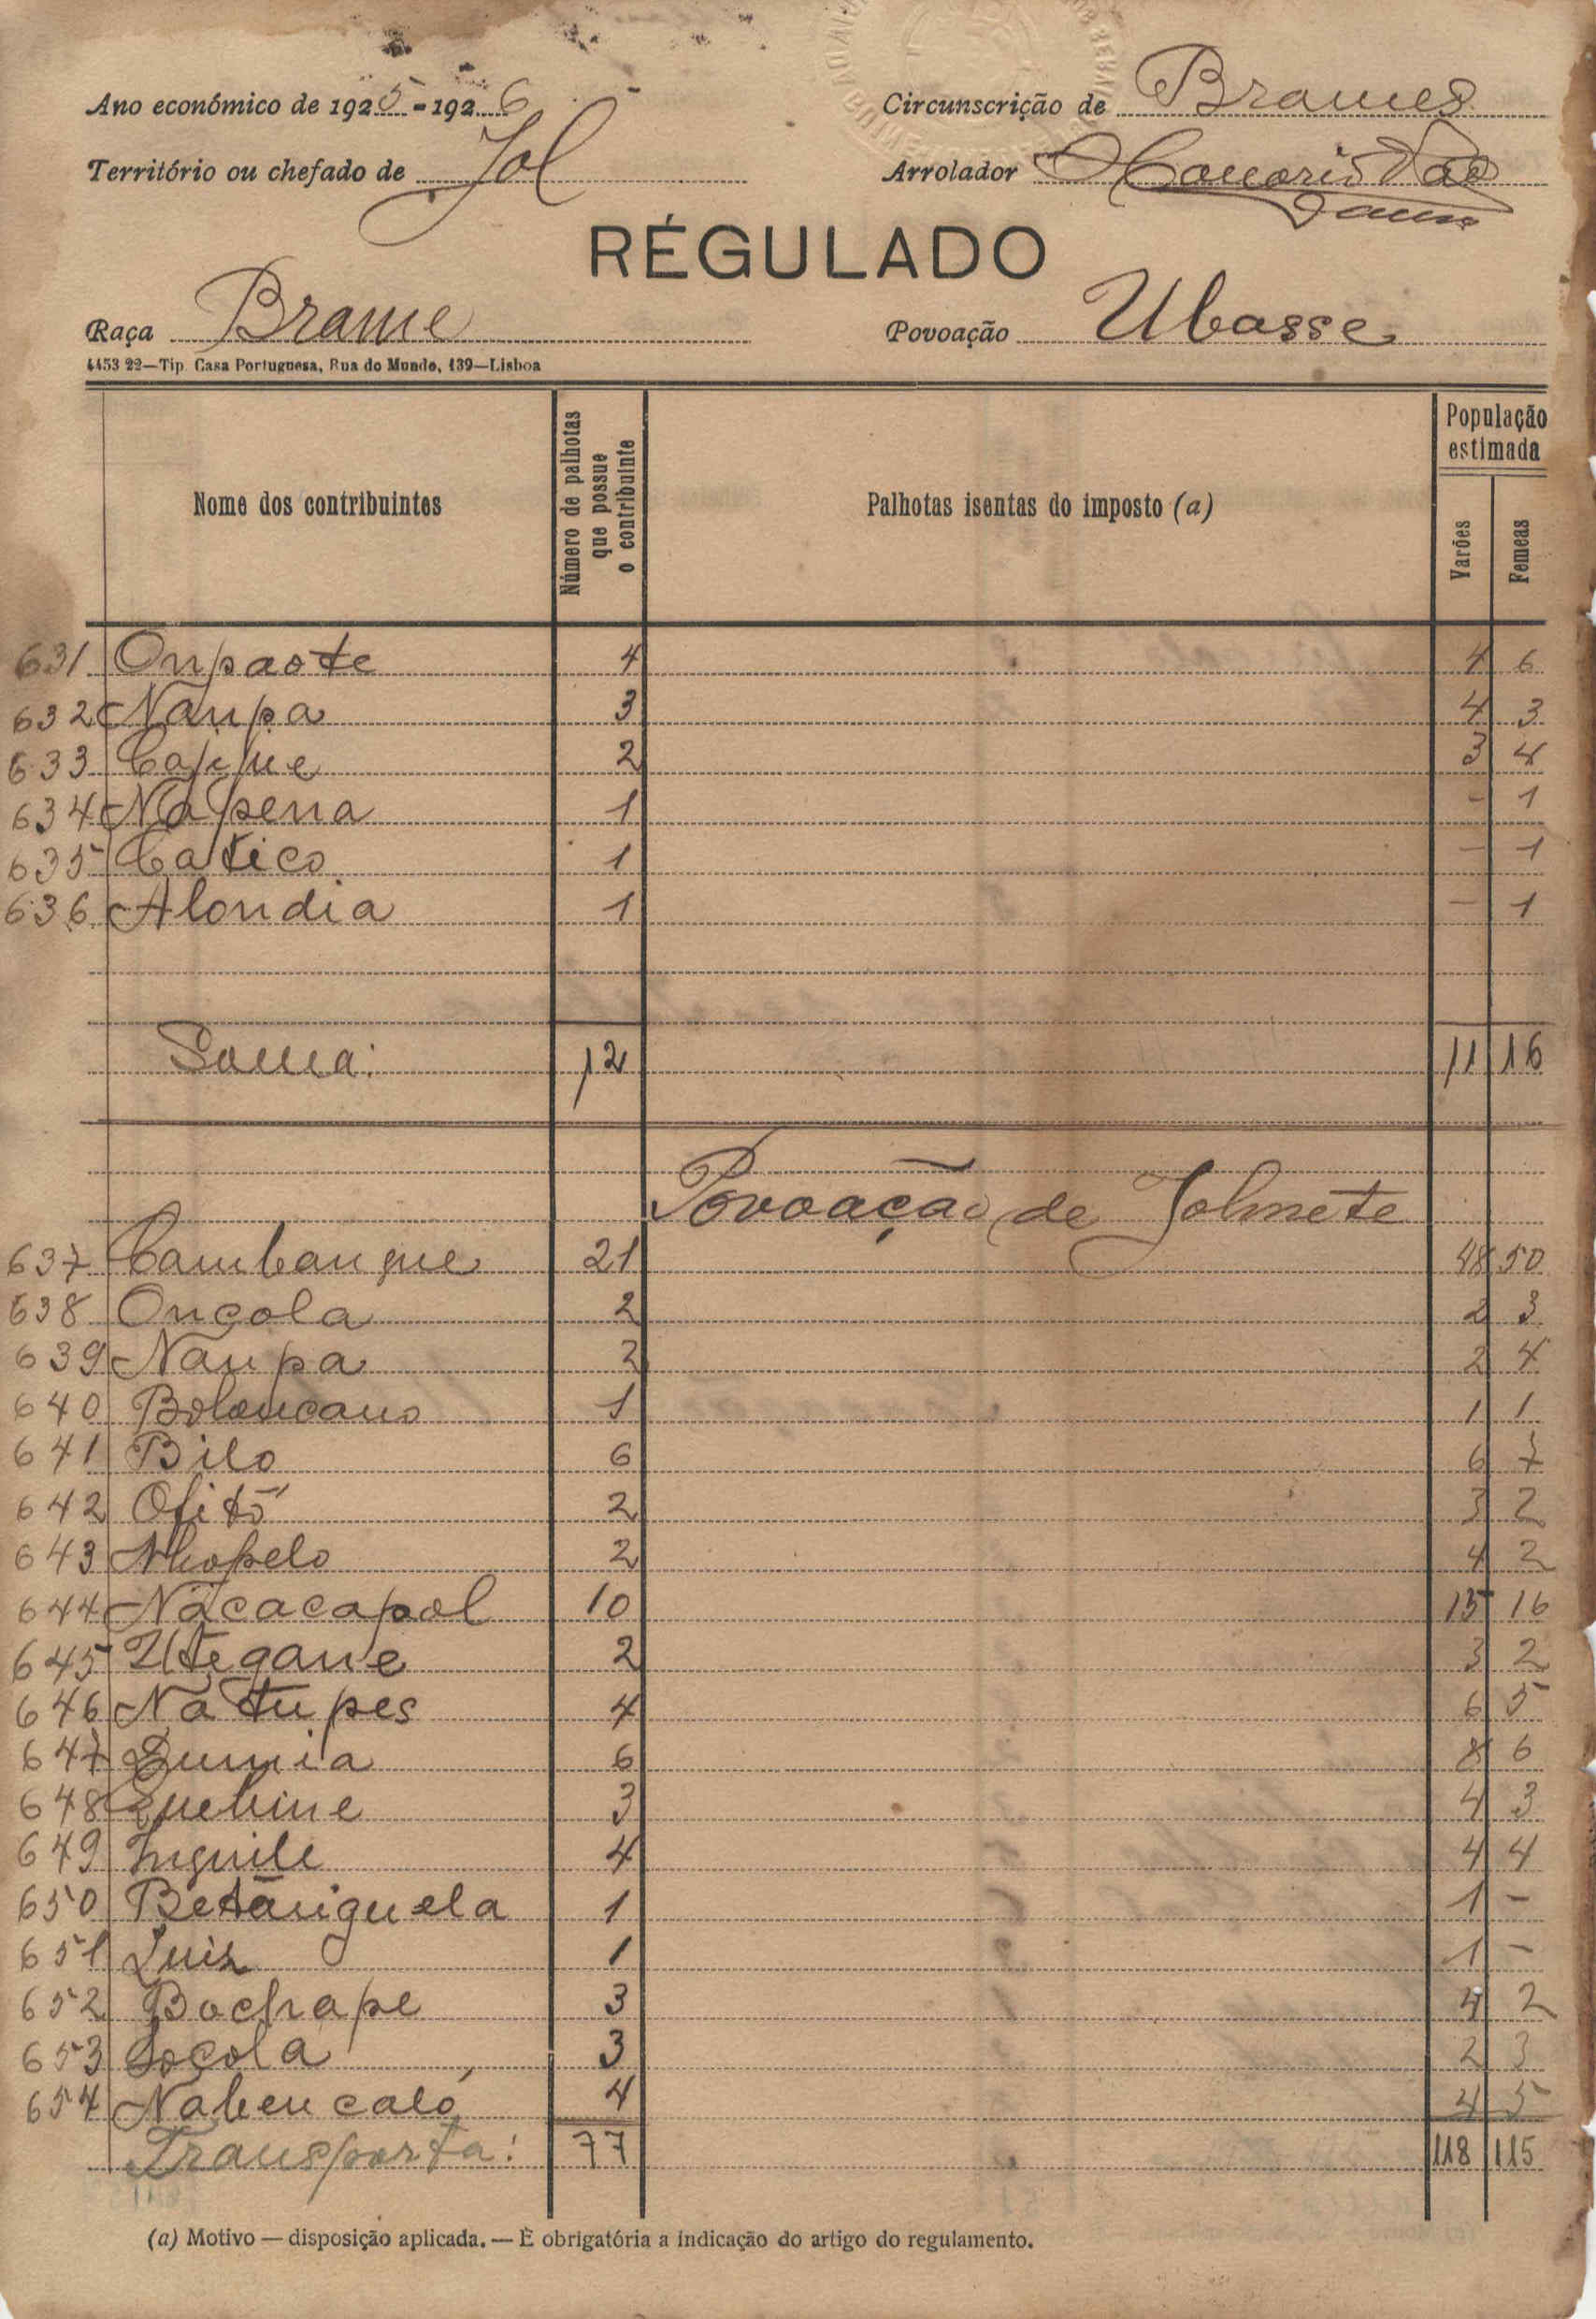 Ano económico de 1925-1926
Circunscrição de Brames
Território ou chefado de Jol
Arrolador
RÉGULADO
Raça Brame
Povoação Ubasse
4453 22—Tip. Casa Portuguesa, Rua do Mundo, 139—Lisboa
Nome dos contribuintes
Número de palhotas que possue o contribuinte
Palhotas isentas do imposto (a)
População estimada
Varões
Femeas
631 Onpaote 4 4 6
632 Naupa 3 4 3
633 2 3 4
634 Napena 1 - 1
635 Catico 1 - 1
636 Alondia 1 - 1
Soma: 12 11 16
Povoação de Jolmete
637 Cambangue 21 48 50
638 Onçola 2 2 3
639 Naupa 2 2 4
640 1 1 1
641 Bilo 6 6 7
642 2 3 2
643 Nhopelo 2 4 2
644 Nacacapol 10 15 16
645 Utegane 2 3 2
646 Natupes 4 6 5
647 6 8 6
648 3 4 3
649 Inguile 4 4 4
650 Betanguela 1 1 -
651 Luis 1 1 -
652 Bochape 3 4 2
653 Socola 3 2 3
654 Nabencaló 4 4 5
Transporta: 77 118 115
(a) Motivo — disposição aplicada. — É obrigatória a indicação do artigo do regulamento.